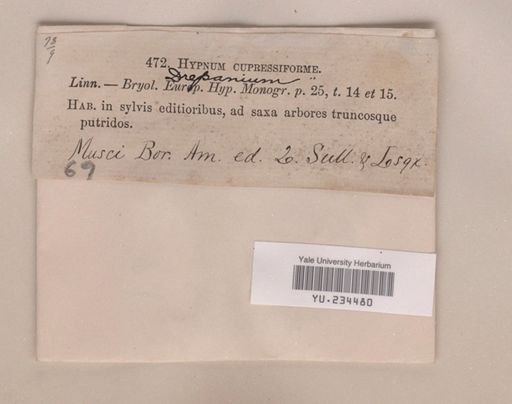 73/9
472. Hypnum cupressiforme.
Drepanium "
Linn. — Bryol. Europ. Hyp. Monogr. p. 25, t. 14 et 15.
Hab. in sylvis editioribus, ad saxa arbores truncosque
putridos.
Musci Bor. Am. ed. 2. Sull. & Lesqx.
69
Yale University Herbarium
YU.234480